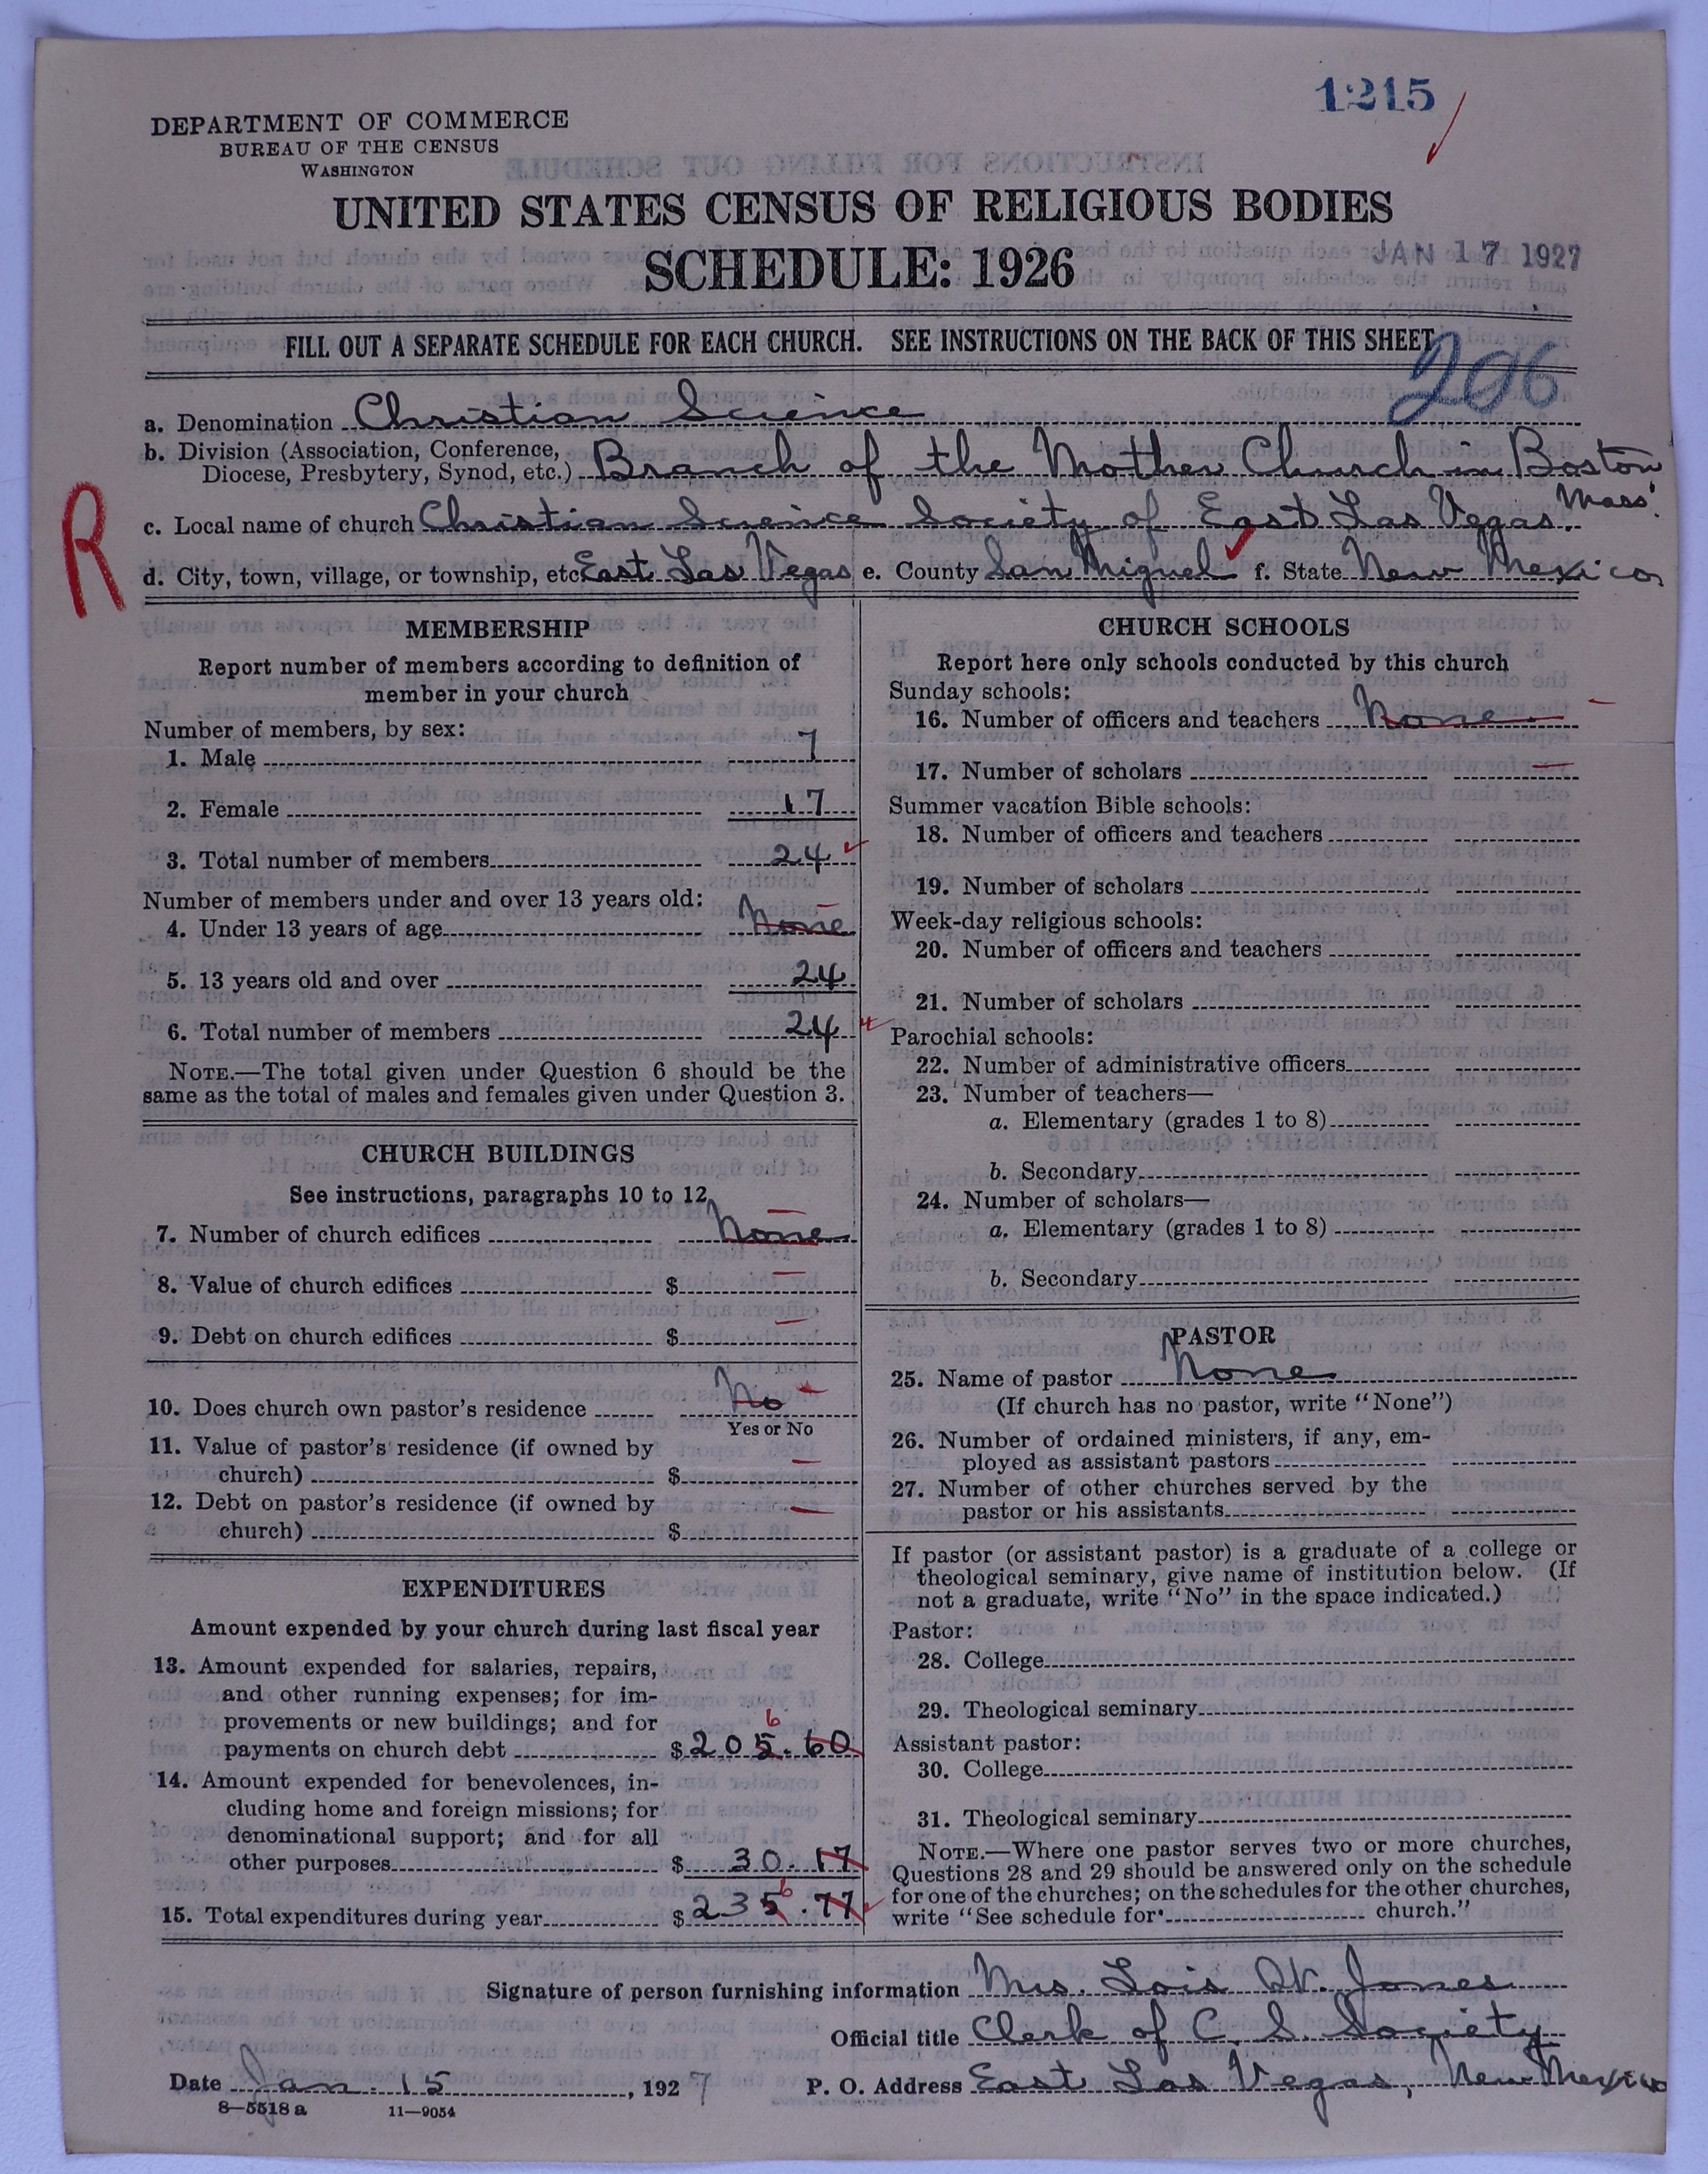 1215
DEPARTMENT OF COMMERCE
BUREAU OF THE CENSUS
WASHINGTON
UNITED STATES CENSUS OF RELIGIOUS BODIES
SCHEDULE: 1926
JAN 17 1927
FILL OUT A SEPARATE SCHEDULE FOR EACH CHURCH. SEE INSTRUCTIONS ON THE BACK OF THIS SHEET
206
a. Denomination Christian Science
b. Division (Association, Conference,
Diocese, Presbytery, Synod, etc.) Branch of the Mother Church in Boston
Mass.
R
c. Local name of church Christian Science Society of East Las Vegas.
d. City, town, village, or township, etc. East Las Vegas e. County San Miguel f. State New Mexico
MEMBERSHIP
Report number of members according to definition of
member in your church
Number of members, by sex:
1. Male 7
2. Female 17
3. Total number of members 24
Number of members under and over 13 years old:
4. Under 13 years of age None
5. 13 years old and over 24
6. Total number of members 24
NOTE.—The total given under Question 6 should be the
same as the total of males and females given under Question 3.
CHURCH BUILDINGS
See instructions, paragraphs 10 to 12
7. Number of church edifices None
8. Value of church edifices $
9. Debt on church edifices $
10. Does church own pastor's residence No
Yes or No
11. Value of pastor's residence (if owned by
church) $
12. Debt on pastor's residence (if owned by
church) $
EXPENDITURES
Amount expended by your church during last fiscal year
13. Amount expended for salaries, repairs,
and other running expenses; for im-
provements or new buildings; and for
6
payments on church debt $ 205.60
14. Amount expended for benevolences, in-
cluding home and foreign missions; for
denominational support; and for all
other purposes $ 30.17
6
15. Total expenditures during year $ 235.77
CHURCH SCHOOLS
Report here only schools conducted by this church
Sunday schools:
16. Number of officers and teachers None
17. Number of scholars
Summer vacation Bible schools:
18. Number of officers and teachers
19. Number of scholars
Week-day religious schools:
20. Number of officers and teachers
21. Number of scholars
Parochial schools:
22. Number of administrative officers
23. Number of teachers—
a. Elementary (grades 1 to 8)
b. Secondary
24. Number of scholars—
a. Elementary (grades 1 to 8)
b. Secondary
PASTOR
25. Name of pastor None
(If church has no pastor, write "None")
26. Number of ordained ministers, if any, em-
ployed as assistant pastors
27. Number of other churches served by the
pastor or his assistants
If pastor (or assistant pastor) is a graduate of a college or
theological seminary, give name of institution below. (If
not a graduate, write "No" in the space indicated.)
Pastor:
28. College
29. Theological seminary
Assistant pastor:
30. College
31. Theological seminary
NOTE.—Where one pastor serves two or more churches,
Questions 28 and 29 should be answered only on the schedule
for one of the churches; on the schedules for the other churches,
write "See schedule for church."
Signature of person furnishing information Mrs. Lois W. Jones
Official title Clerk of C. S. Society
Date Jan. 15, 1927 P. O. Address East Las Vegas, New Mexico
8—5518 a 11—9054